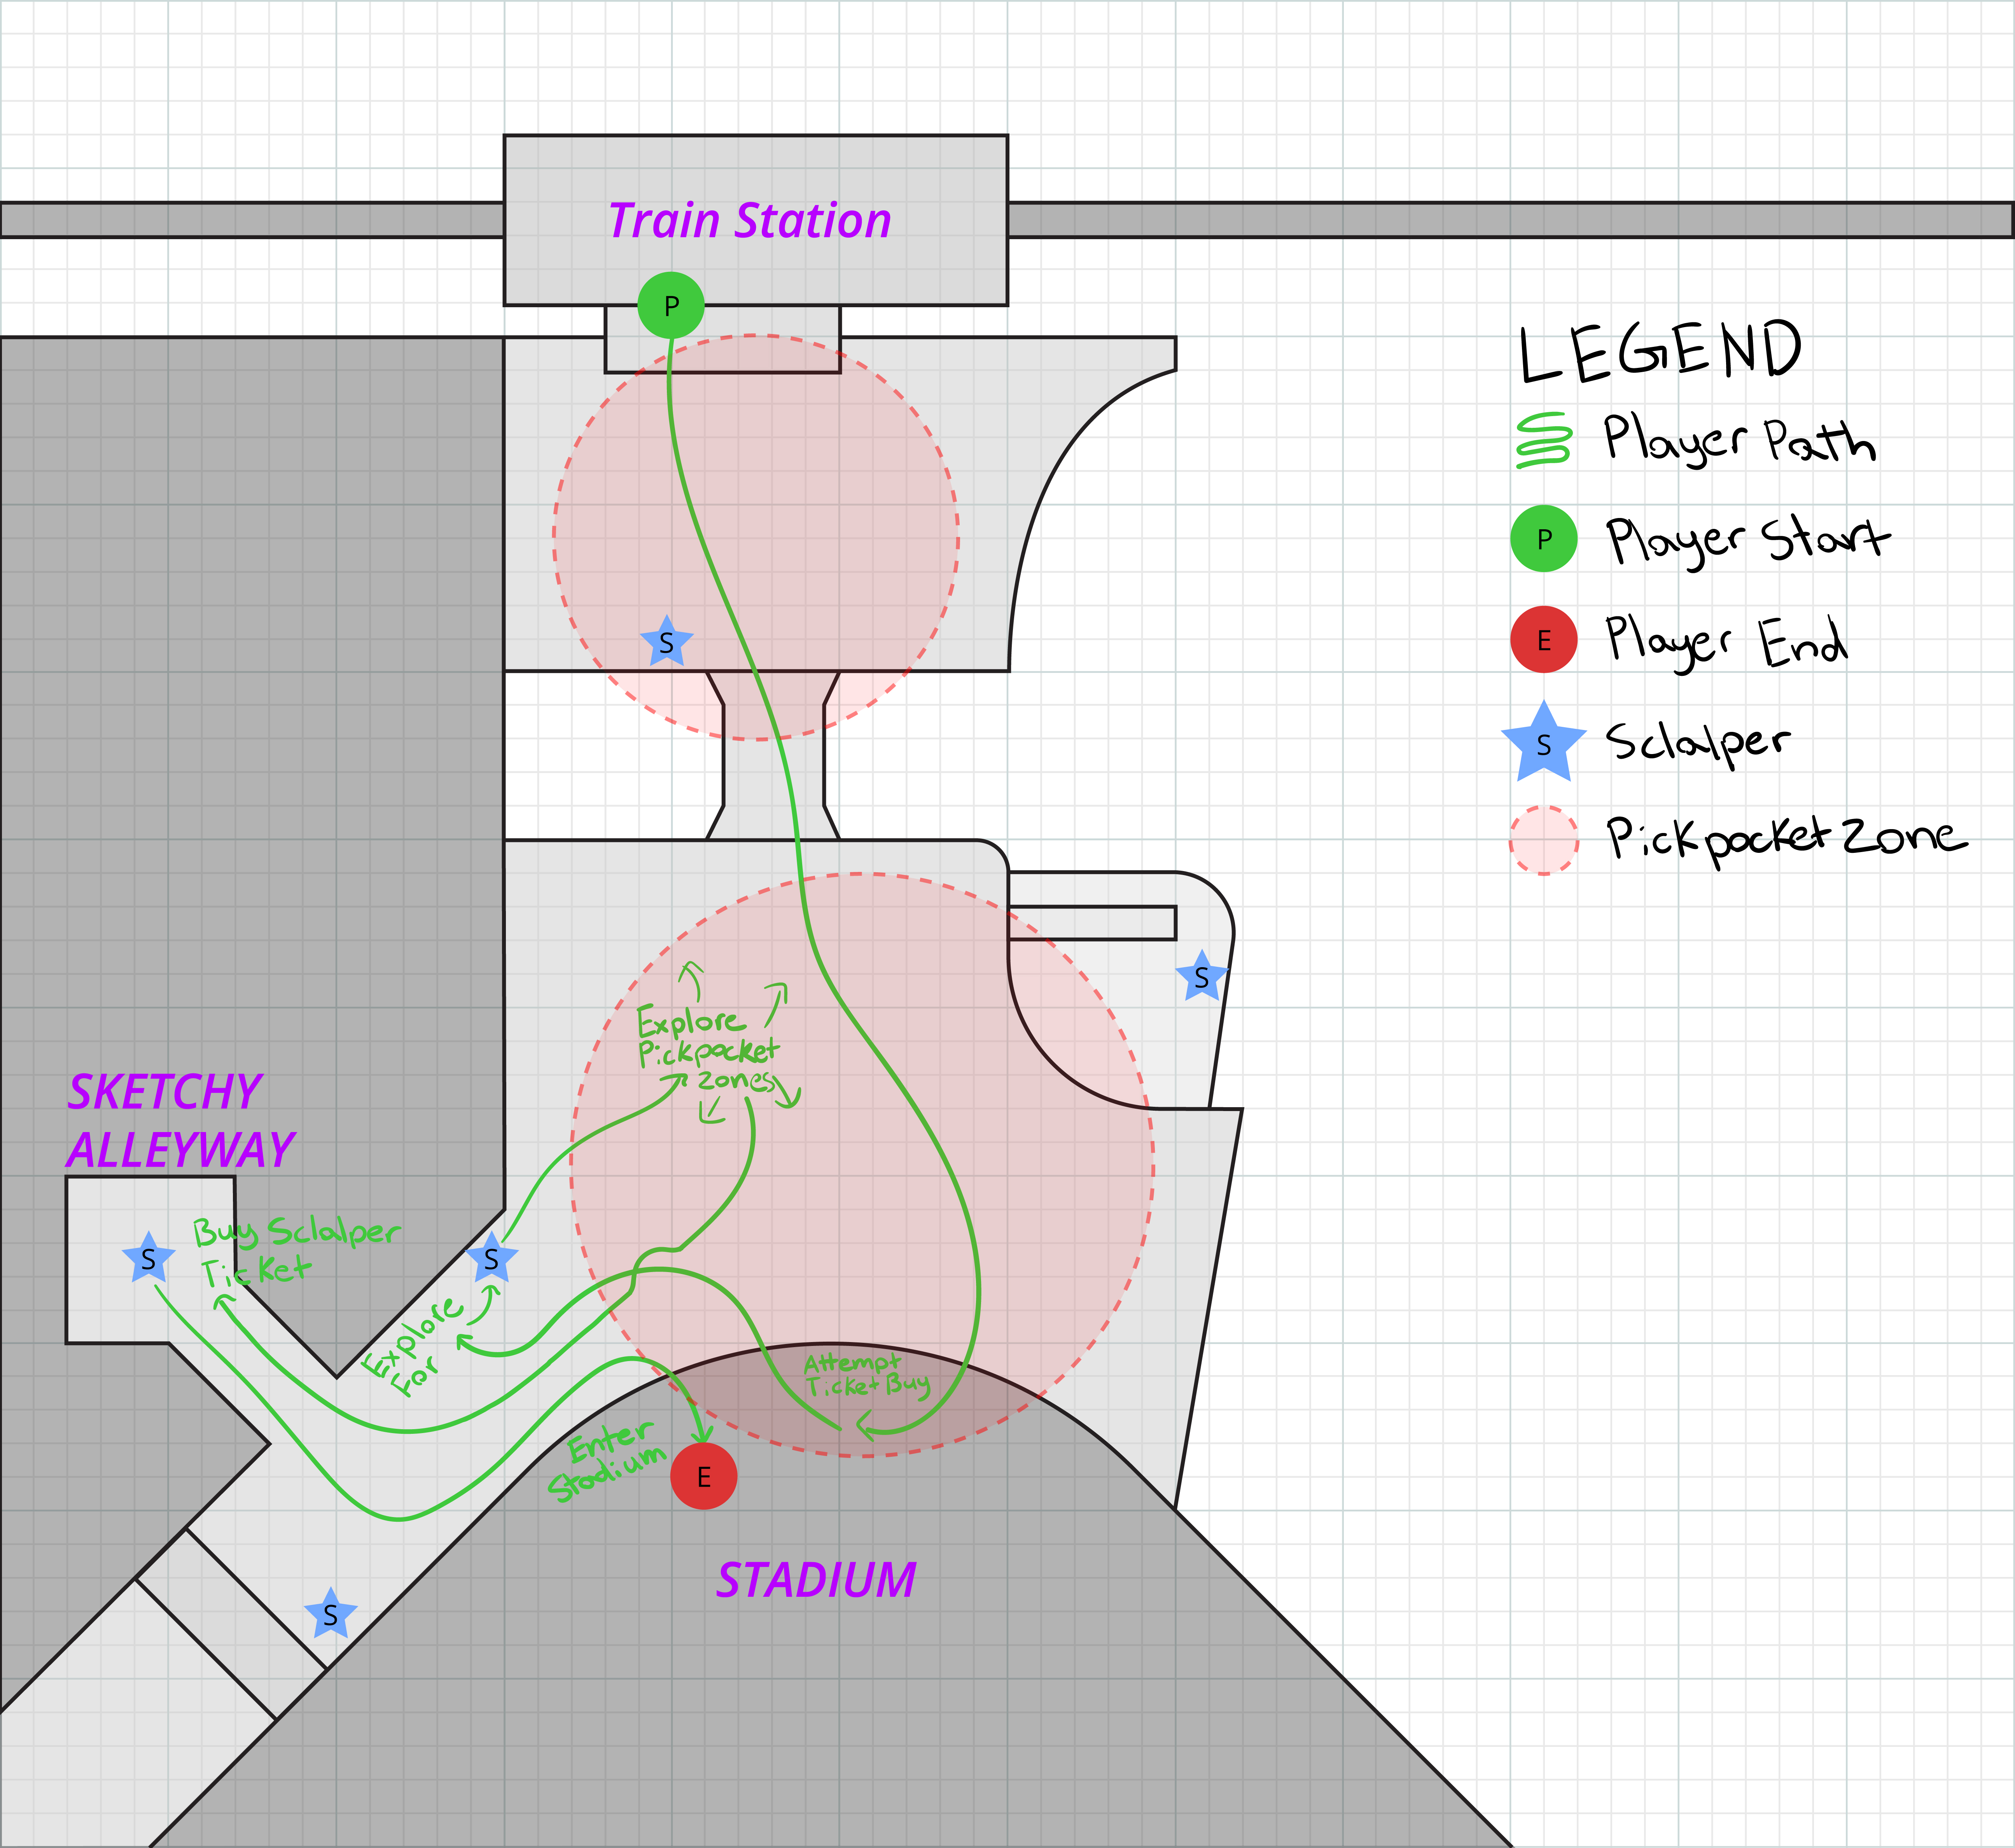 Train Station
P
LEGEND
Player Path
P Player Start
E Player End
S Sclalper
Pickpocket Zone
S
S
Explore
Pickpocket
Zones
SKETCHY
ALLEYWAY
S
Buy Sclalper
Ticket
S
Explore
For
Attempt
Ticket Buy
Enter
Stadium
E
STADIUM
S